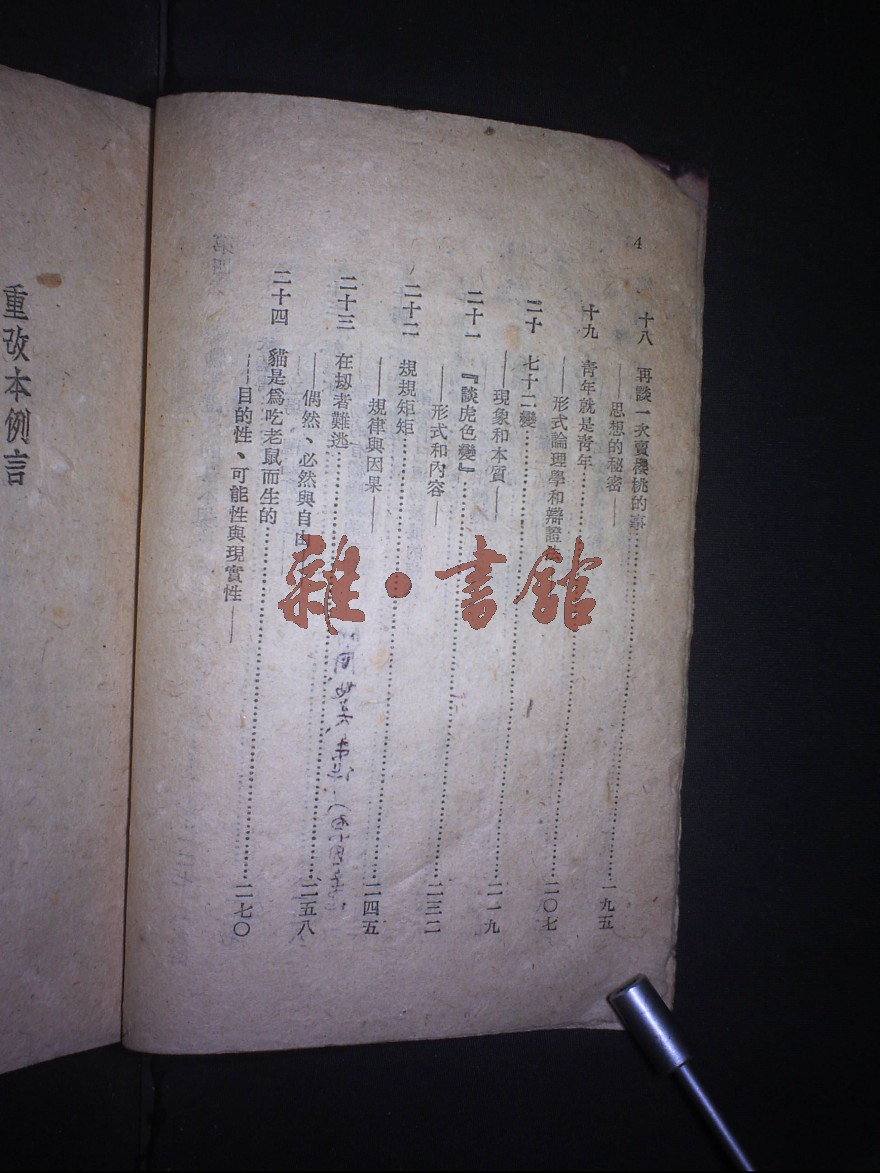 4
十八 再談一次賣櫻桃的事……一九五
——思想的秘密——
十九 青年就是青年……二〇七
——形式論理學和辯證法
二十 七十二變……二一九
——現象和本質——
二十一 『談虎色變』……二三二
——形式和內容——
二十二 規規矩矩……二四五
——規律與因果——
二十三 在劫者難逃……二五八
——偶然、必然與自由
二十四 貓是為吃老鼠而生的……二七〇
——目的性、可能性與現實性——
重改本例言
雜·書館